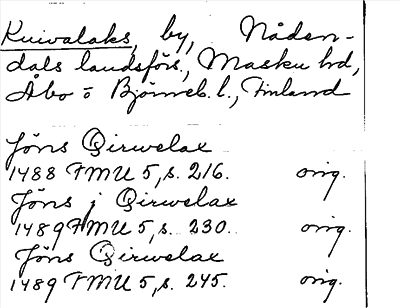 Kuivalaks, by, Nåden-
dals landsförs., Masku hd,
Åbo o Björneb. l., Finland
Jöns Qirwelax
1488 FMU 5, s. 216. orig.
Jöns j Qirwelax
1489 FMU 5, s. 230. orig.
Jöns Qirwelax
1489 FMU 5, s. 245. orig.